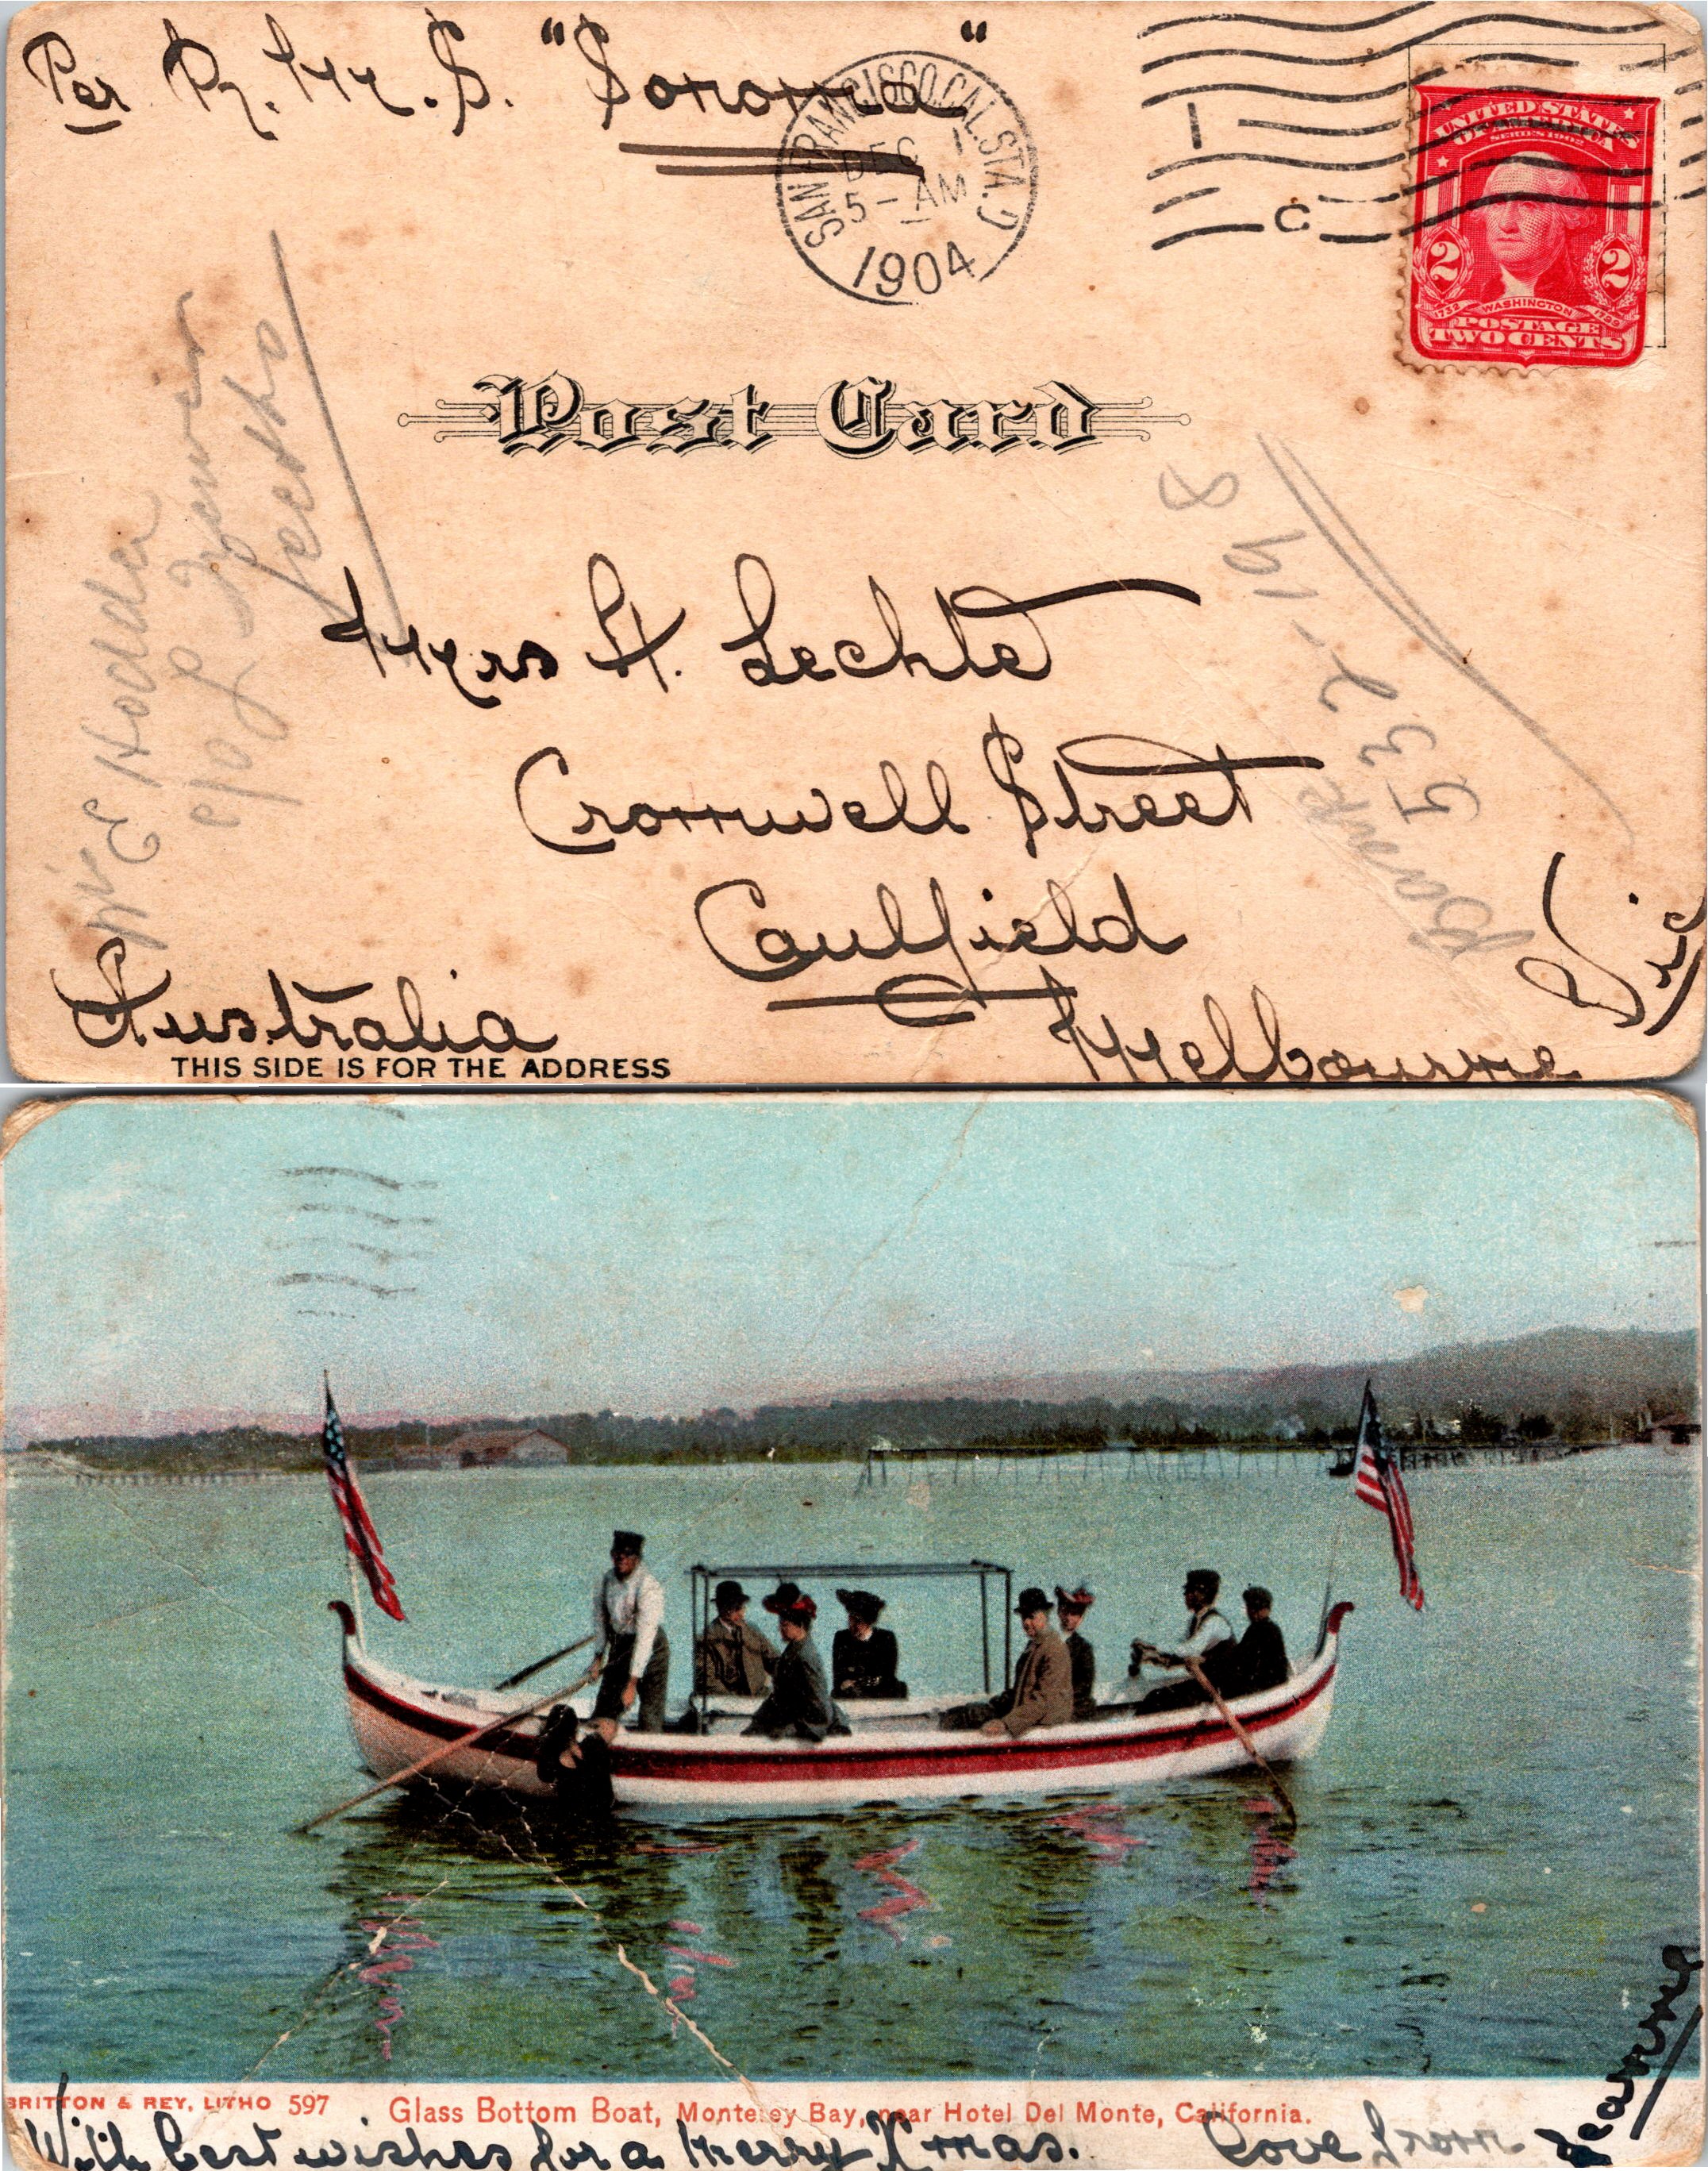 Per R. M. S. "Sonoma"
SAN FRANCISCO, CAL. STA.
DEC 1
5 - AM
1904
1
C
UNITED STATES
OF AMERICA
SERIES 1902
2 2
1732 WASHINGTON 1799
POSTAGE
TWO CENTS
Post Card
E Hodder
c/o
8
19
Bank
537-
Mrs H. Lechte
Cromwell Street
Caulfield
Melbourne
Vic
Australia
THIS SIDE IS FOR THE ADDRESS
BRITTON & REY, LITHO 597
Glass Bottom Boat, Monterey Bay, near Hotel Del Monte, California.
With best wishes for a merry Xmas. Love from